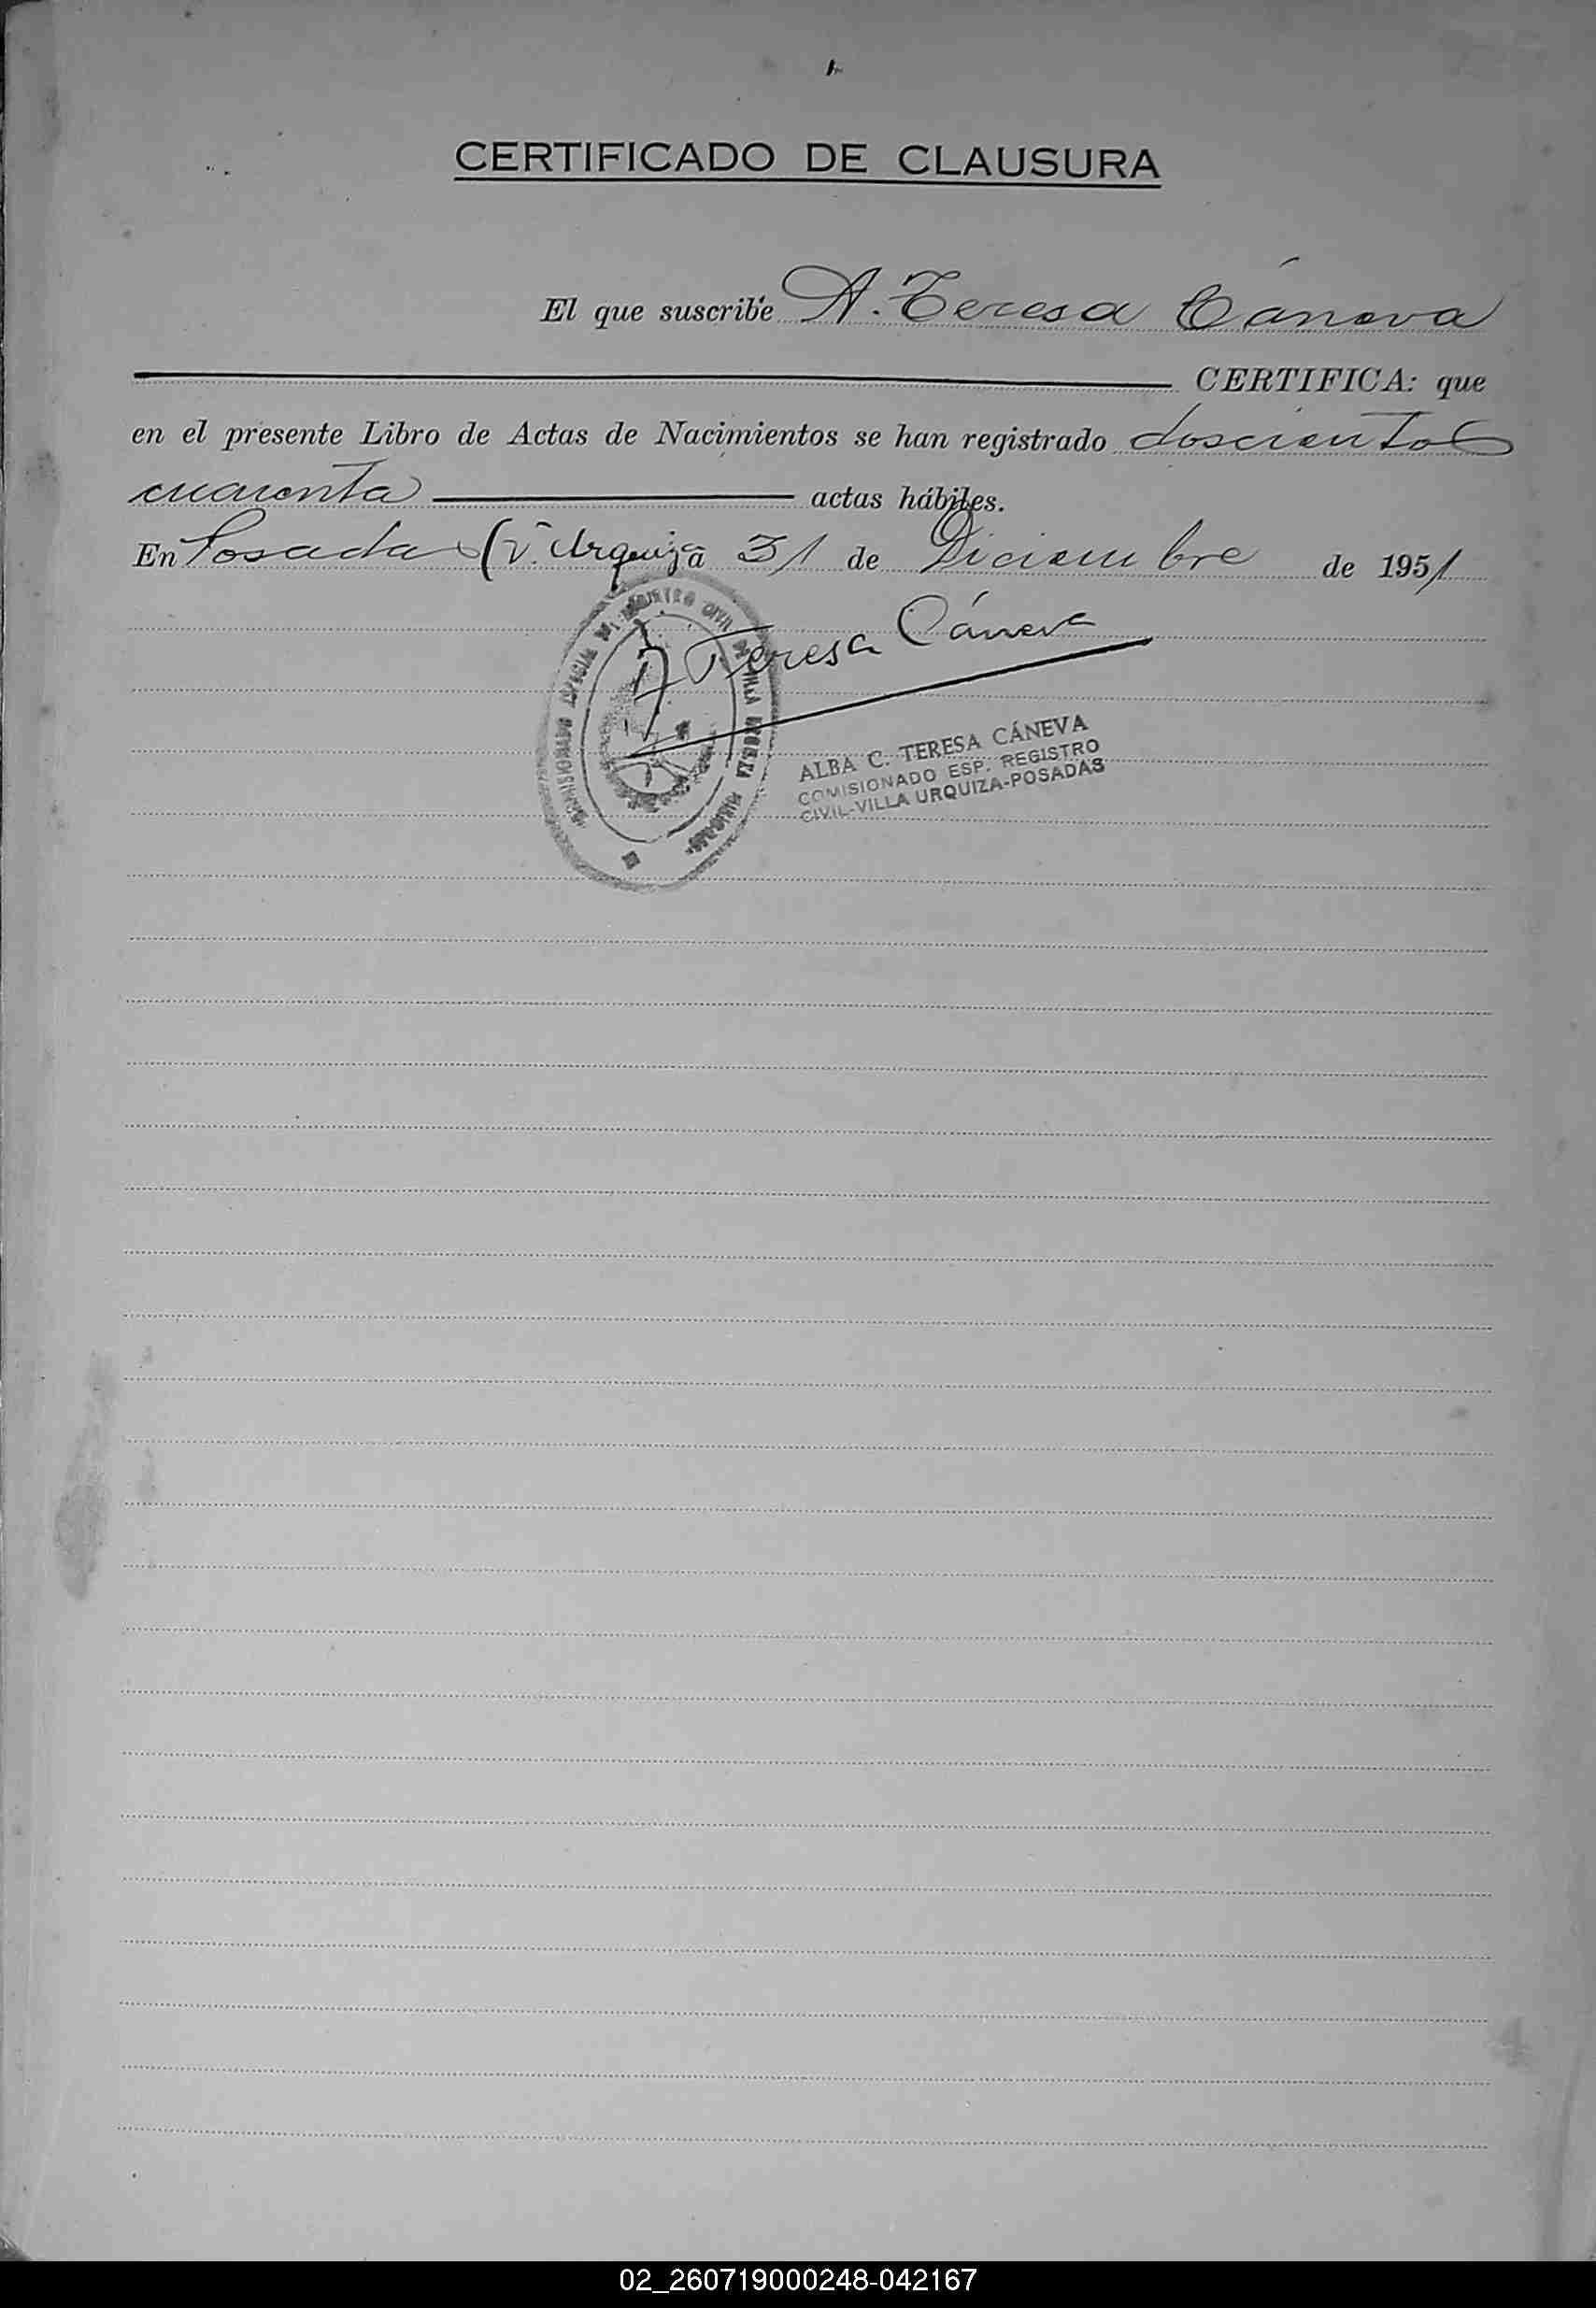 CERTIFICADO DE CLAUSURA
El que suscribe A. Teresa Cáneva
CERTIFICA: que
en el presente Libro de Actas de Nacimientos se han registrado doscientos
cuarenta actas hábiles.
En Posadas (V. Urquiza 31 de Diciembre de 1951
Teresa Cáneva
ALBA C. TERESA CÁNEVA
COMISIONADO ESP. REGISTRO
CIVIL-VILLA URQUIZA-POSADAS
02_260719000248-042167